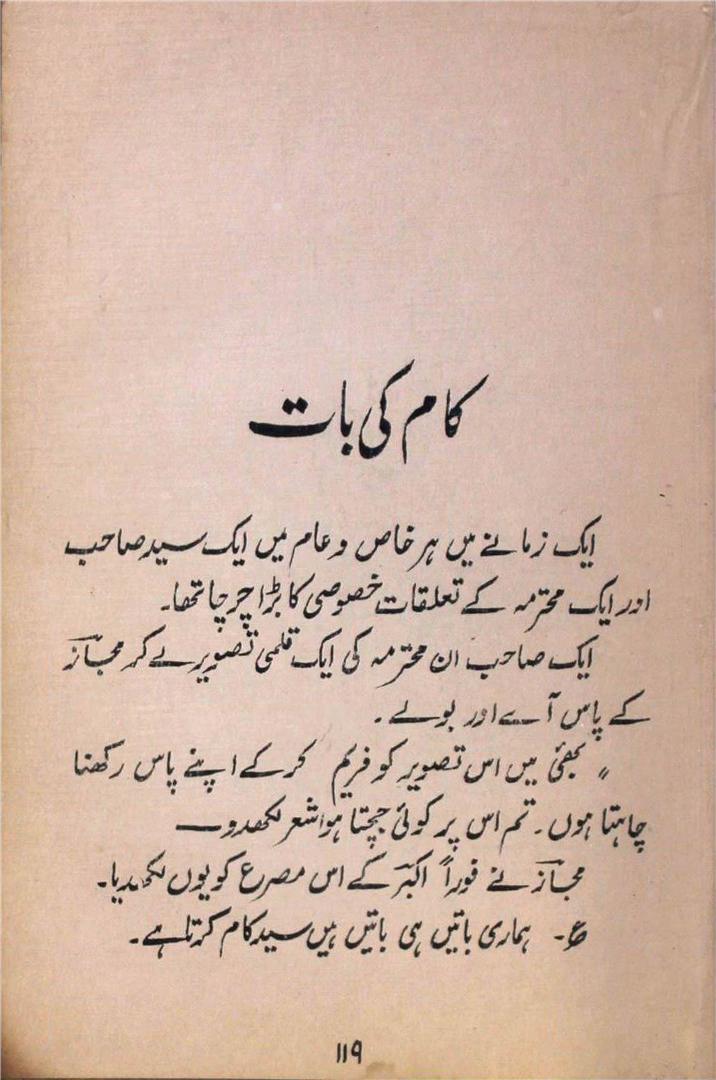 کام کی بات
ایک زمانے میں ہر خاص و عام میں ایک سید صاحب
اور ایک محترمہ کے تعلقات خصوصی کا بڑا چرچا تھا۔
ایک صاحب ان محترمہ کی ایک قلمی تصویر لے کر مجازؔ
کے پاس آے اور بولے۔
" بھئی میں اس تصویر کو فریم کر کے اپنے پاس رکھنا
چاہتا ہوں۔ تم اس پر کوئی جچتا ہوا شعر لکھدو ــــ
مجازؔ نے فوراً اکبرؔ کے اس مصرع کو یوں لکھدیا۔
ع۔ ہماری باتیں ہی باتیں ہیں سید کام کرتا ہے۔
۱۱۹